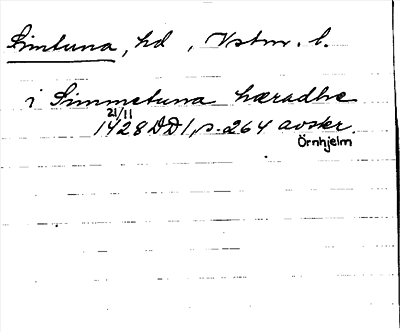 Simtuna, hd, Vstm. l.
i Simmetuna hæradhe
21/11
1428 DD1, s. 264 avskr.
Örnhjelm